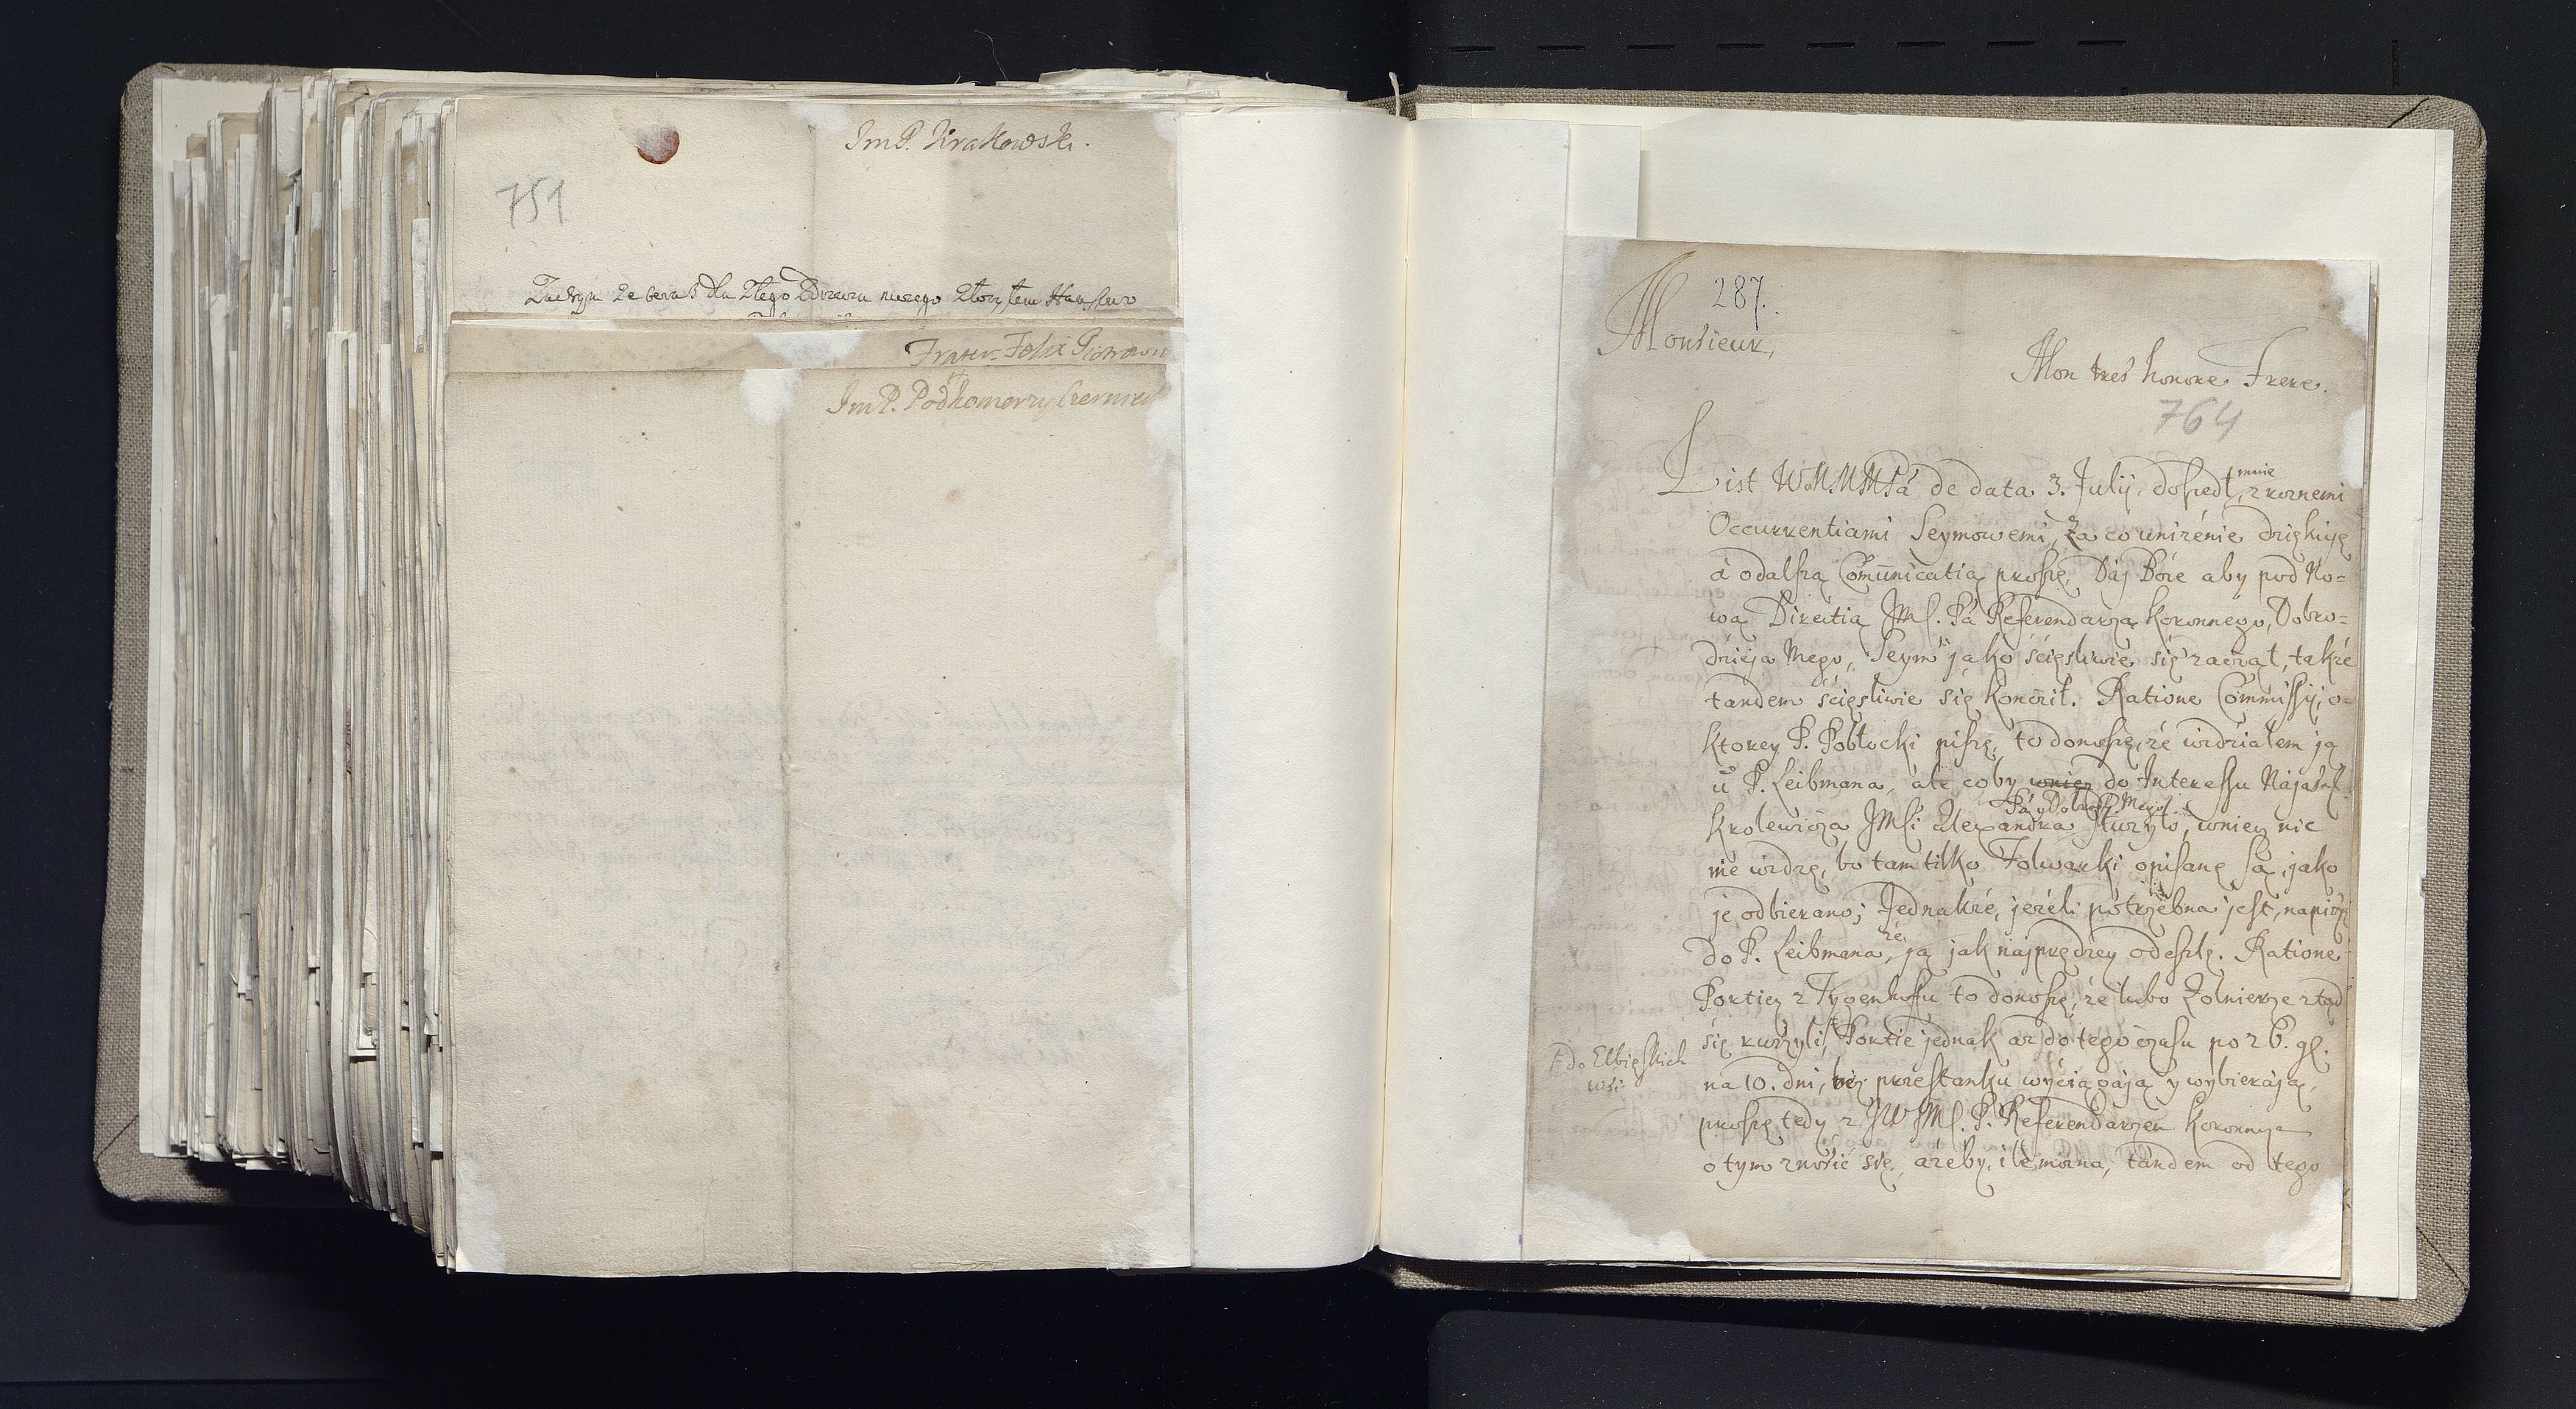 ImP. Krakowski.
751
Zacżym Ze teraz dla Złego Zdrowia mego złożyłem
Frater. Felix
ImP. Podkomorzy
287.
Monsieur,
Mon tres honore Frere.
764
List WMMMPa de data 3. Julij. doszedł mnie, z roznemi
Occurrentiami Seymowemi, Za co unizenie dziękuię
a o dalszą Com̃unicatią proszę, Daj Boże aby pod No=
wą Directią JMs. Pa Referendarza Koronnego, Dobro=
dzieja Mego, Seym jako sczęsliwie się zaczął, takze
tandem sczęsliwie się koncził. Ratione Commissij, o=
ktorey P. Pobłocki pisze, to donoszę, ze widziałem ją
u P. Leibmana, ale co by wniey do Interessu Najasń.
Krolewicza JMsi Alexandra Pa y Dobrodz. Mego służyło, wniey nic
nie widzę, bo tam tilko Folwarki opisane są, jako
je odbierano; Jednakze, jezeli potrzebna jest, napiszę
do P. Leibmana, ze ją jak najprędzey odeszle. Ratione
Portiey z Tygenhoffu to donoszę, ze lubo Zołnierze ztąd
się ruszyli, Portie jednak az do tego czasu po 26. gl.
† do Elbięskich
wsi
na 10. dni, bez przestanku wyciągają y wybierają,
proszę tedy z JWJMs. P. Referendarzem Koronnym
o tym znosić się, azeby, ile mozna, tandem od tego